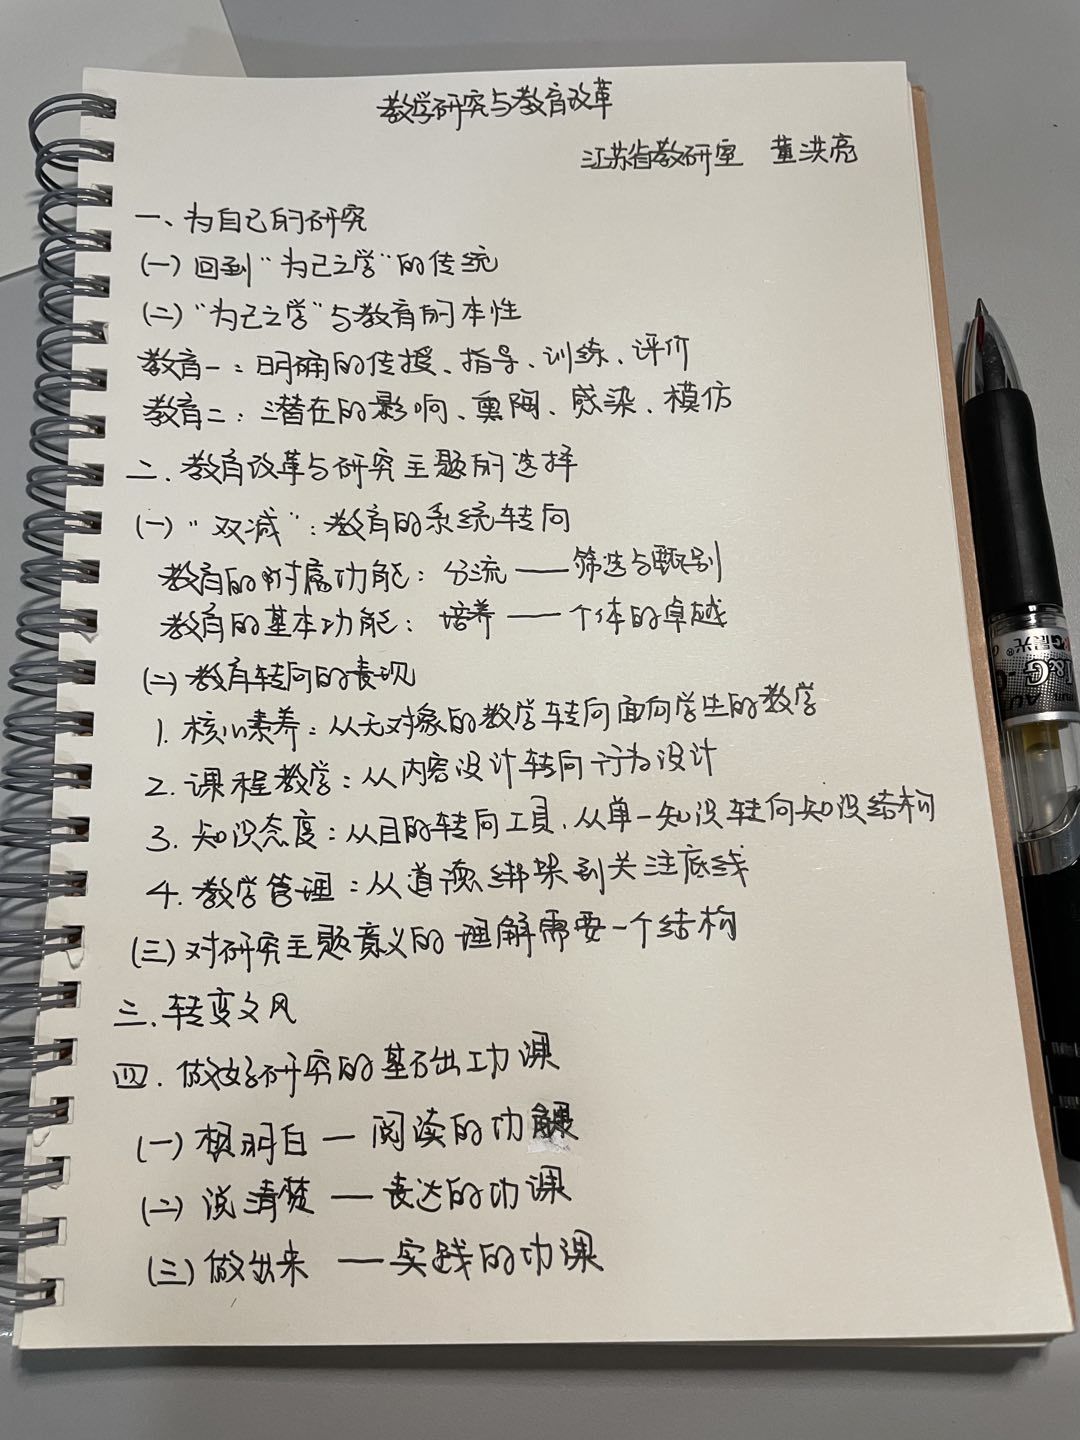 教学研究与教育改革
江苏省教研室 董洪亮
一、为自己的研究
(一)回到“为己之学”的传统
(二)“为己之学”与教育的本性
教育一：明确的传授、指导、训练、评价
教育二：潜在的影响、熏陶、感染、模仿
二、教育改革与研究主题的选择
(一)“双减”：教育的系统转向
教育的附属功能：分流——筛选与甄别
教育的基本功能：培养——个体的卓越
(二)教育转向的表现
1. 核心素养：从无对象的教学转向面向学生的教学
2. 课程教学：从内容设计转向行为设计
3. 知识态度：从目的转向工具、从单一知识转向知识结构
4. 教学管理：从道德绑架到关注底线
(三)对研究主题意义的理解需要一个结构
三、转变文风
四、做好研究的基础功课
(一)想明白—阅读的功课
(二)说清楚—表达的功课
(三)做出来—实践的功课
晨光®
M&G